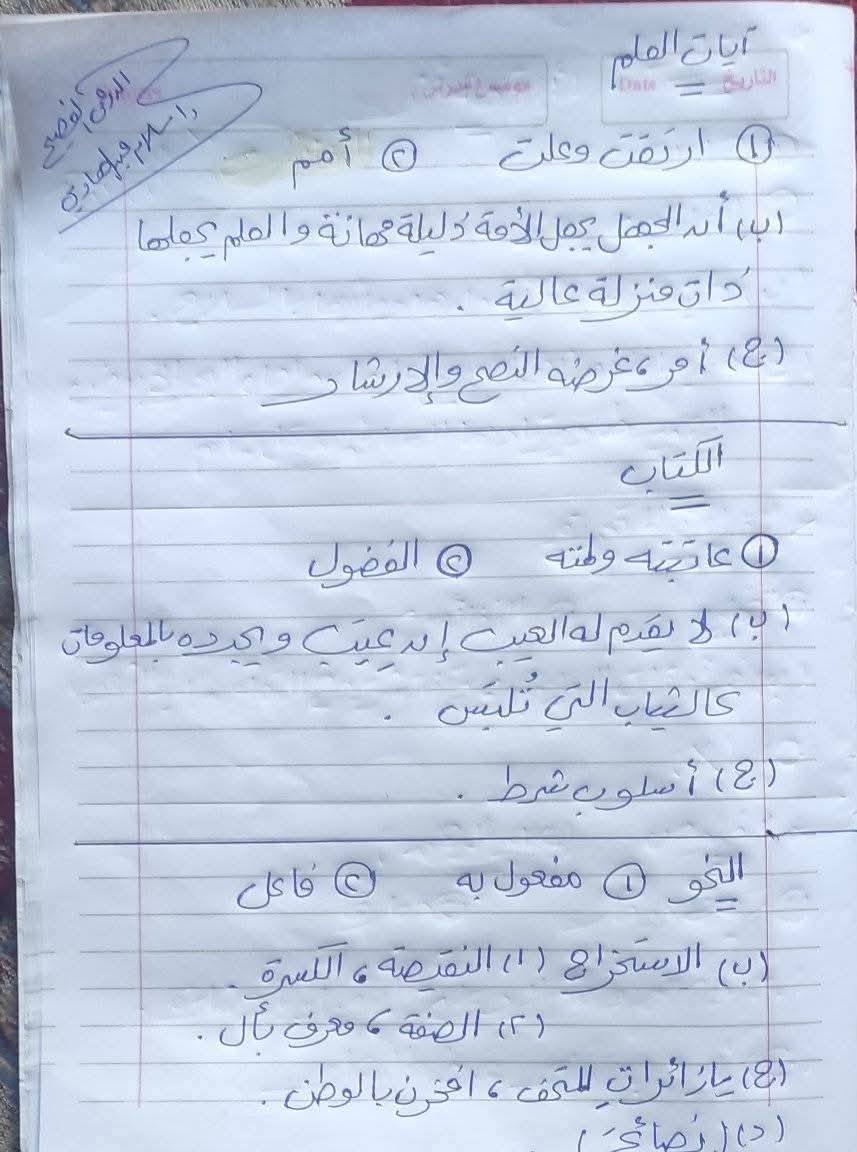 آيات العلم
التاريخ Date
① ارتقت وعلت ② أمم
(ب) أن الجهل يجعل الأمة ذليلة مهانة والعلم يجعلها
ذات منزلة عالية .
(ج) أمر، غرضه النصح والإرشاد
الكتاب
① عاتبته ولمته ② الفضول
(ب) لا يقدم له العيب إن عيب ويجرده بالمعلومات
كالثياب التي تُلبَس .
(ج) أسلوب شرط .
النحو ① مفعول به ② فاعل
(ب) الاستخراج (١) النقيصة، الكسرة .
(٢) الصفة، معرف بأل .
(ج) يا زائراتِ المتحف، افخرن بالوطن .
(د) (نصائحَ)